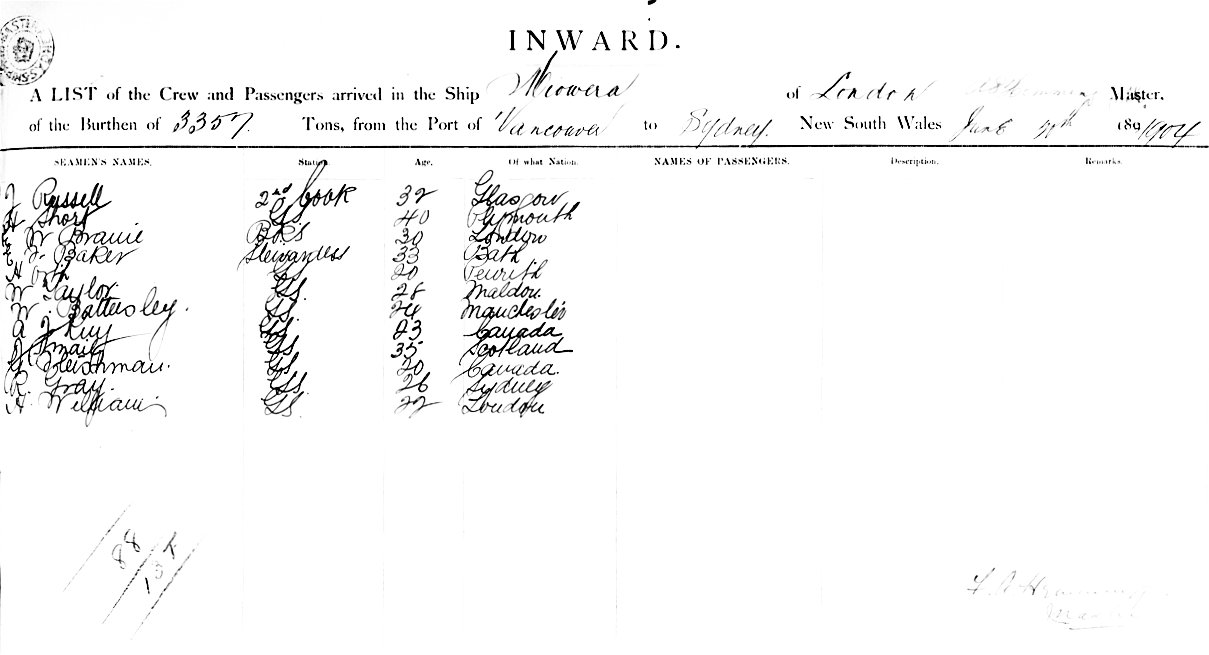 INWARD.
A LIST of the Crew and Passengers arrived in the Ship Miowera of London Hemming Master,
of the Burthen of 3357. Tons, from the Port of Vancouver to Sydney. New South Wales June 189 1904
SEAMEN'S NAMES. Station. Age. Of what Nation. NAMES OF PASSENGERS. Description. Remarks.
J Russell 2nd Cook 32 Glasgow
H Short GS. 40 Plymouth
W Braine 30 London
Baker Stewardess 33 Bath
H GS 20 Penrith
W Taylor GS. 28 Maldon.
W. Battersley. GS. 24 Manchester
A J GS. 23 Canada
GS. 35 Scotland
G Fleishman. GS 20 Canada.
R. Gray. GS. 26 Sydney
H William GS. 22 London
88
13
Hemming
Master